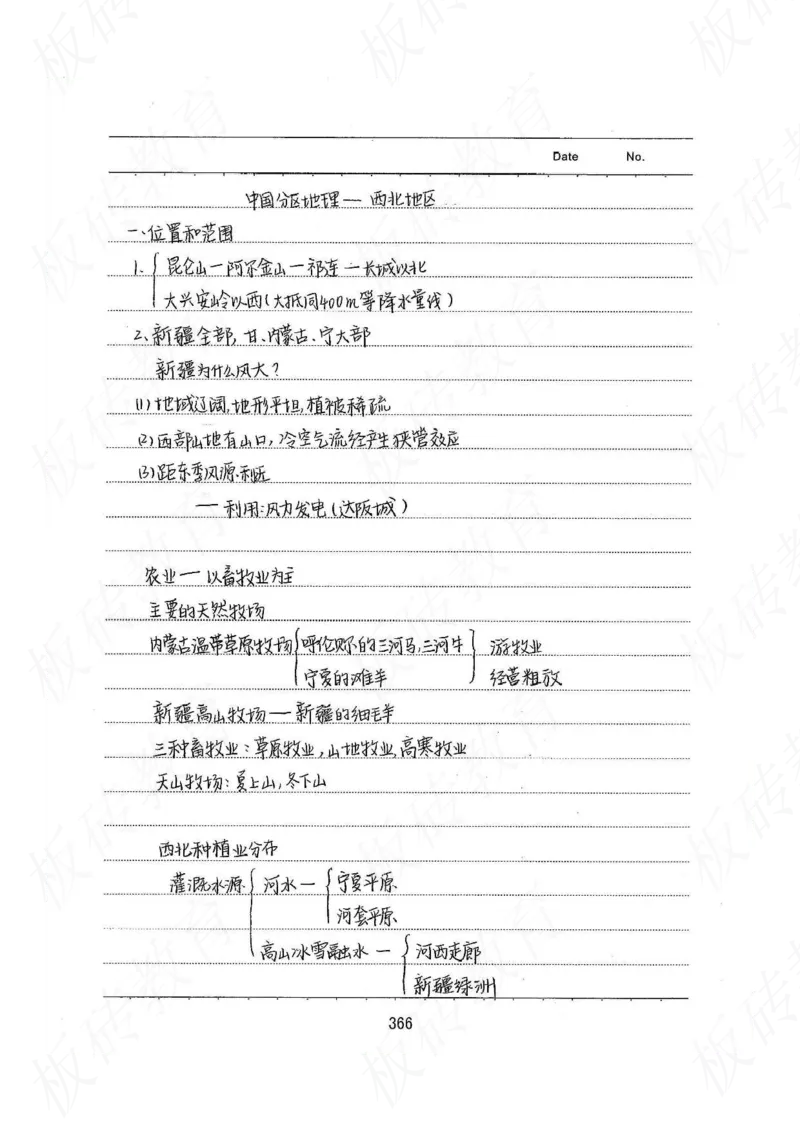 Date No.
中国分区地理一 西北地区
一、位置和范围
1. { 昆仑山一阿尔金山一祁连一长城以北
大兴安岭以西(大抵同400m等降水量线)
2、新疆全部, 甘、内蒙古、宁大部
新疆为什么风大?
(1)地域辽阔,地形平坦,植被稀疏
(2)西部山地有山口,冷空气流经产生狭管效应
(3)距东季风源.利近
一 利用:风力发电(达阪城)
农业一 以畜牧业为主
主要的天然牧场
内蒙古温带草原牧场 { 呼伦贝尔的三河马,三河牛 } 游牧业
宁夏的滩羊 经营粗放
新疆高山牧场一 新疆的细毛羊
三种畜牧业:草原牧业,山地牧业,高寒牧业
天山牧场:夏上山,冬下山
西北种植业分布
灌溉水源 { 河水一 { 宁夏平原
河套平原
高山冰雪融水 一 { 河西走廊
新疆绿洲
366
板砖教育